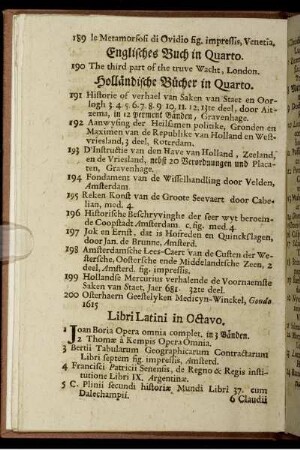 189 le Metamorfosi di Ovidio fig. impressis, Venetia,
Englisches Buch in Quarto.
190 The third part of the truve Wacht, London.
Holländische Bücher in Quarto.
191 Historie of verhael van Saken van Staet en Oor-
logh 3. 4. 5. 6. 7. 8. 9. 10. 11. 12. 13te deel, door Ait-
zema, in 12 Perment Bänden, Gravenhage.
192 Aanwysing der Heilsamen politike, Gronden en
Maximen van de Republike van Holland en West-
vriesland, 3 deel, Roterdam.
193 D'Instructie van den Have van Holland, Zeeland,
en de Vriesland, nebst 20 Verordnungen und Placa-
ten, Gravenhage.
194 Fondament van de Wisselhandling door Velden,
Amsterdam
195 Reken Konst van de Groote Seevaert door Cabe-
lian, med. 4.
196 Historische Beschryvinghe der seer wyt beroem-
de Coopstadt Amsterdam c. fig. med. 4.
197 Jok en Ernst, dat is Hofreden en Quinckslagen,
door Jan. de Brunne, Amsterd.
198 Amsterdamsche Lees-Caert van de Custen der We-
stersche, Oostersche ende Middelandtsche Zeen, 2
deel, Amsterd. fig. impressis.
199 Hollandse Mercurius verhalende de Voornaemste
Saken van Staet, Jaer 681. 32te deel.
200 Osterhaern Geestelyken Medicyn-Winckel, Gouda
1615
Libri Latini in Octavo.
1 Joan Boria Opera omnia complet, in 3 Bänden.
2 Thomæ à Kempis Opera Omnia.
3 Bertii Tabularum Geographicarum Contractarum
Libri septem fig. impressis, Amsterd.
4 Francisci Patricii Senensis, de Regno & Regis insti-
tutione Libri IX. Argentinæ.
5 C. Plinii secundi historiæ Mundi Libri 37. cum
Dalechampii.
6 Claudii